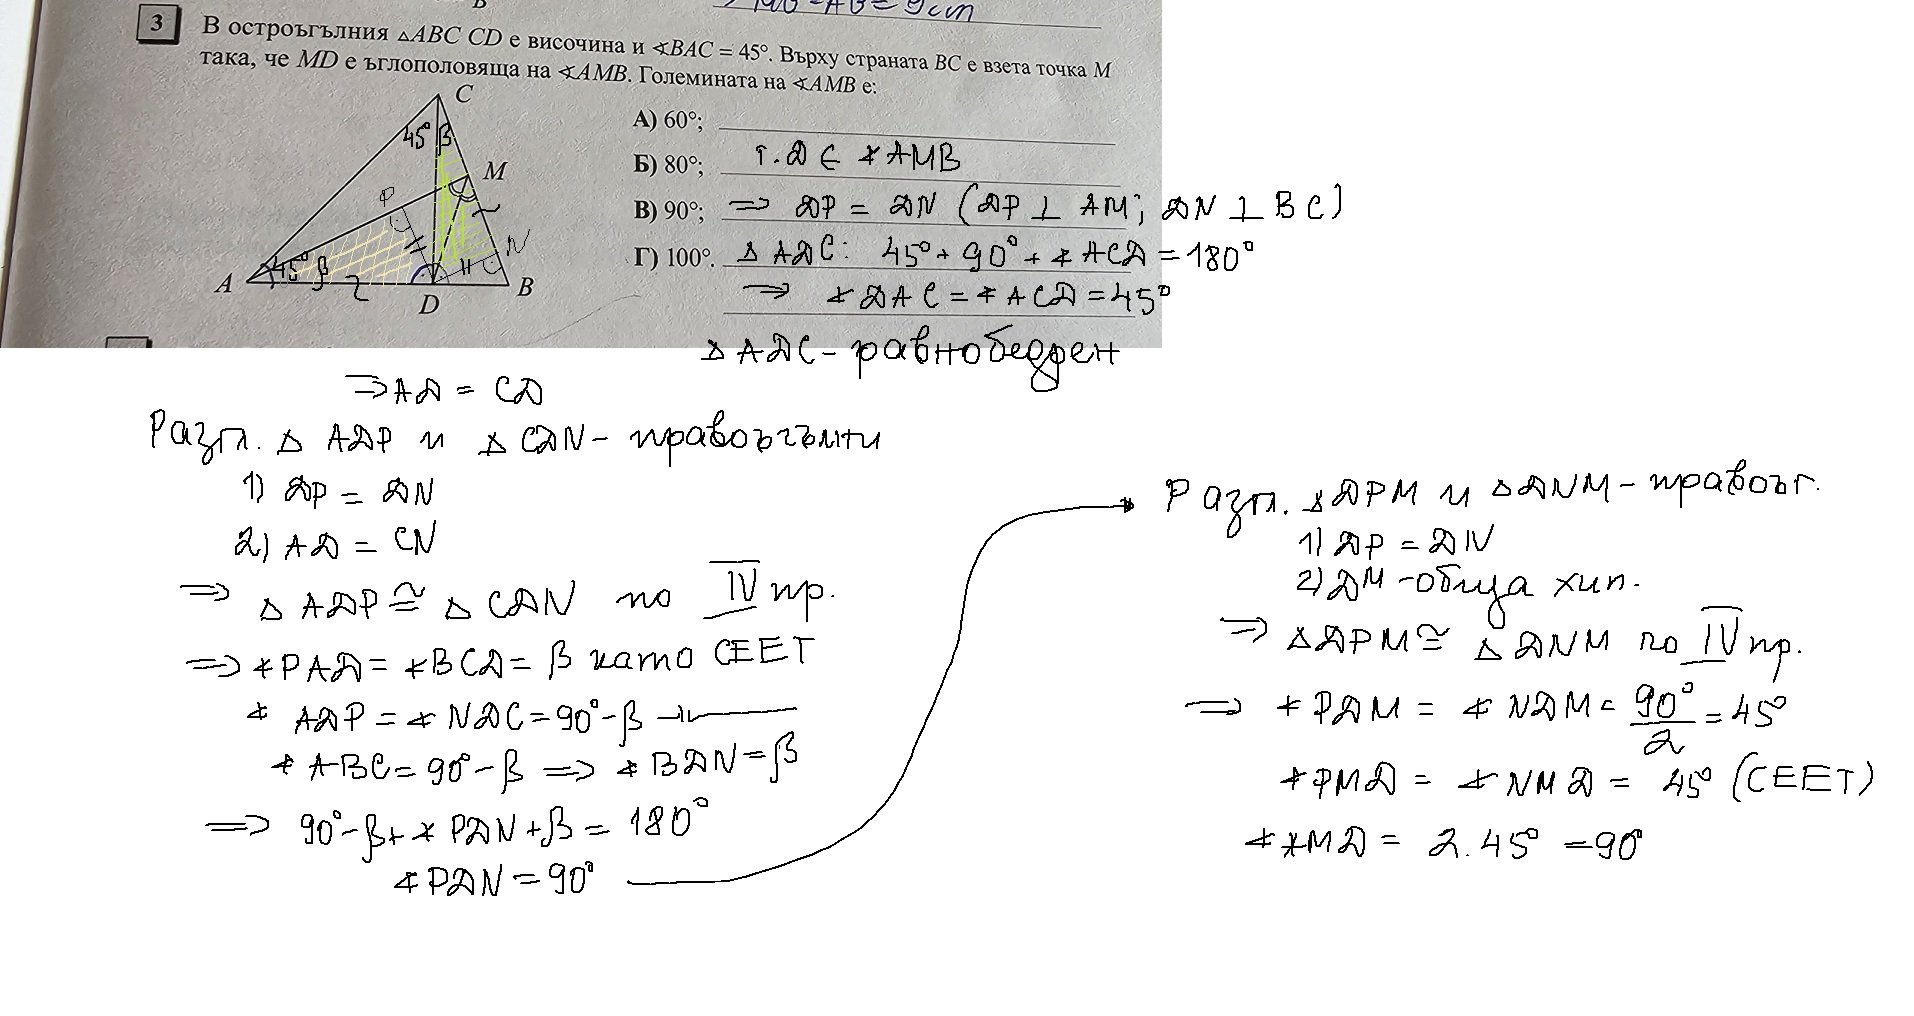 В
→ AB = 9cm
3 В остроъгълния △ABC CD е височина и ∢BAC = 45°. Върху страната BC е взета точка M
така, че MD е ъглополовяща на ∢AMB. Големината на ∢AMB е:
C
45° β
M
P
N
45° β
A
D
B
А) 60°;
Б) 80°; т. D ∈ ∢ AMB
В) 90°; ⇒ DP = DN (DP ⊥ AM; DN ⊥ BC)
Г) 100°. △ ADC: 45° + 90° + ∢ ACD = 180°
⇒ ∢ DAC = ∢ ACD = 45°
△ ADC - равнобедрен
⇒ AD = CD
Разгл. △ ADP и △ CDN - правоъгълни
1) DP = DN
2) AD = CN
⇒ △ ADP ≅ △ CDN по IV пр.
⇒ ∢PAD = ∢BCD = β като СЕЕТ
∢ ADP = ∢ NDC = 90° - β -//-
∢ ABC = 90° - β ⇒ ∢ BDN = β
⇒ 90° - β + ∢ PDN + β = 180°
∢ PDN = 90°
Разгл. △DPM и △DNM - правоъг.
1) DP = DN
2) DM - обща хип.
⇒ △DPM ≅ △ DNM по IV пр.
⇒ ∢ PDM = ∢ NDM = 90°/2 = 45°
∢PMD = ∢ NMD = 45° (СЕЕТ)
∢ ∢MD = 2.45° = 90°